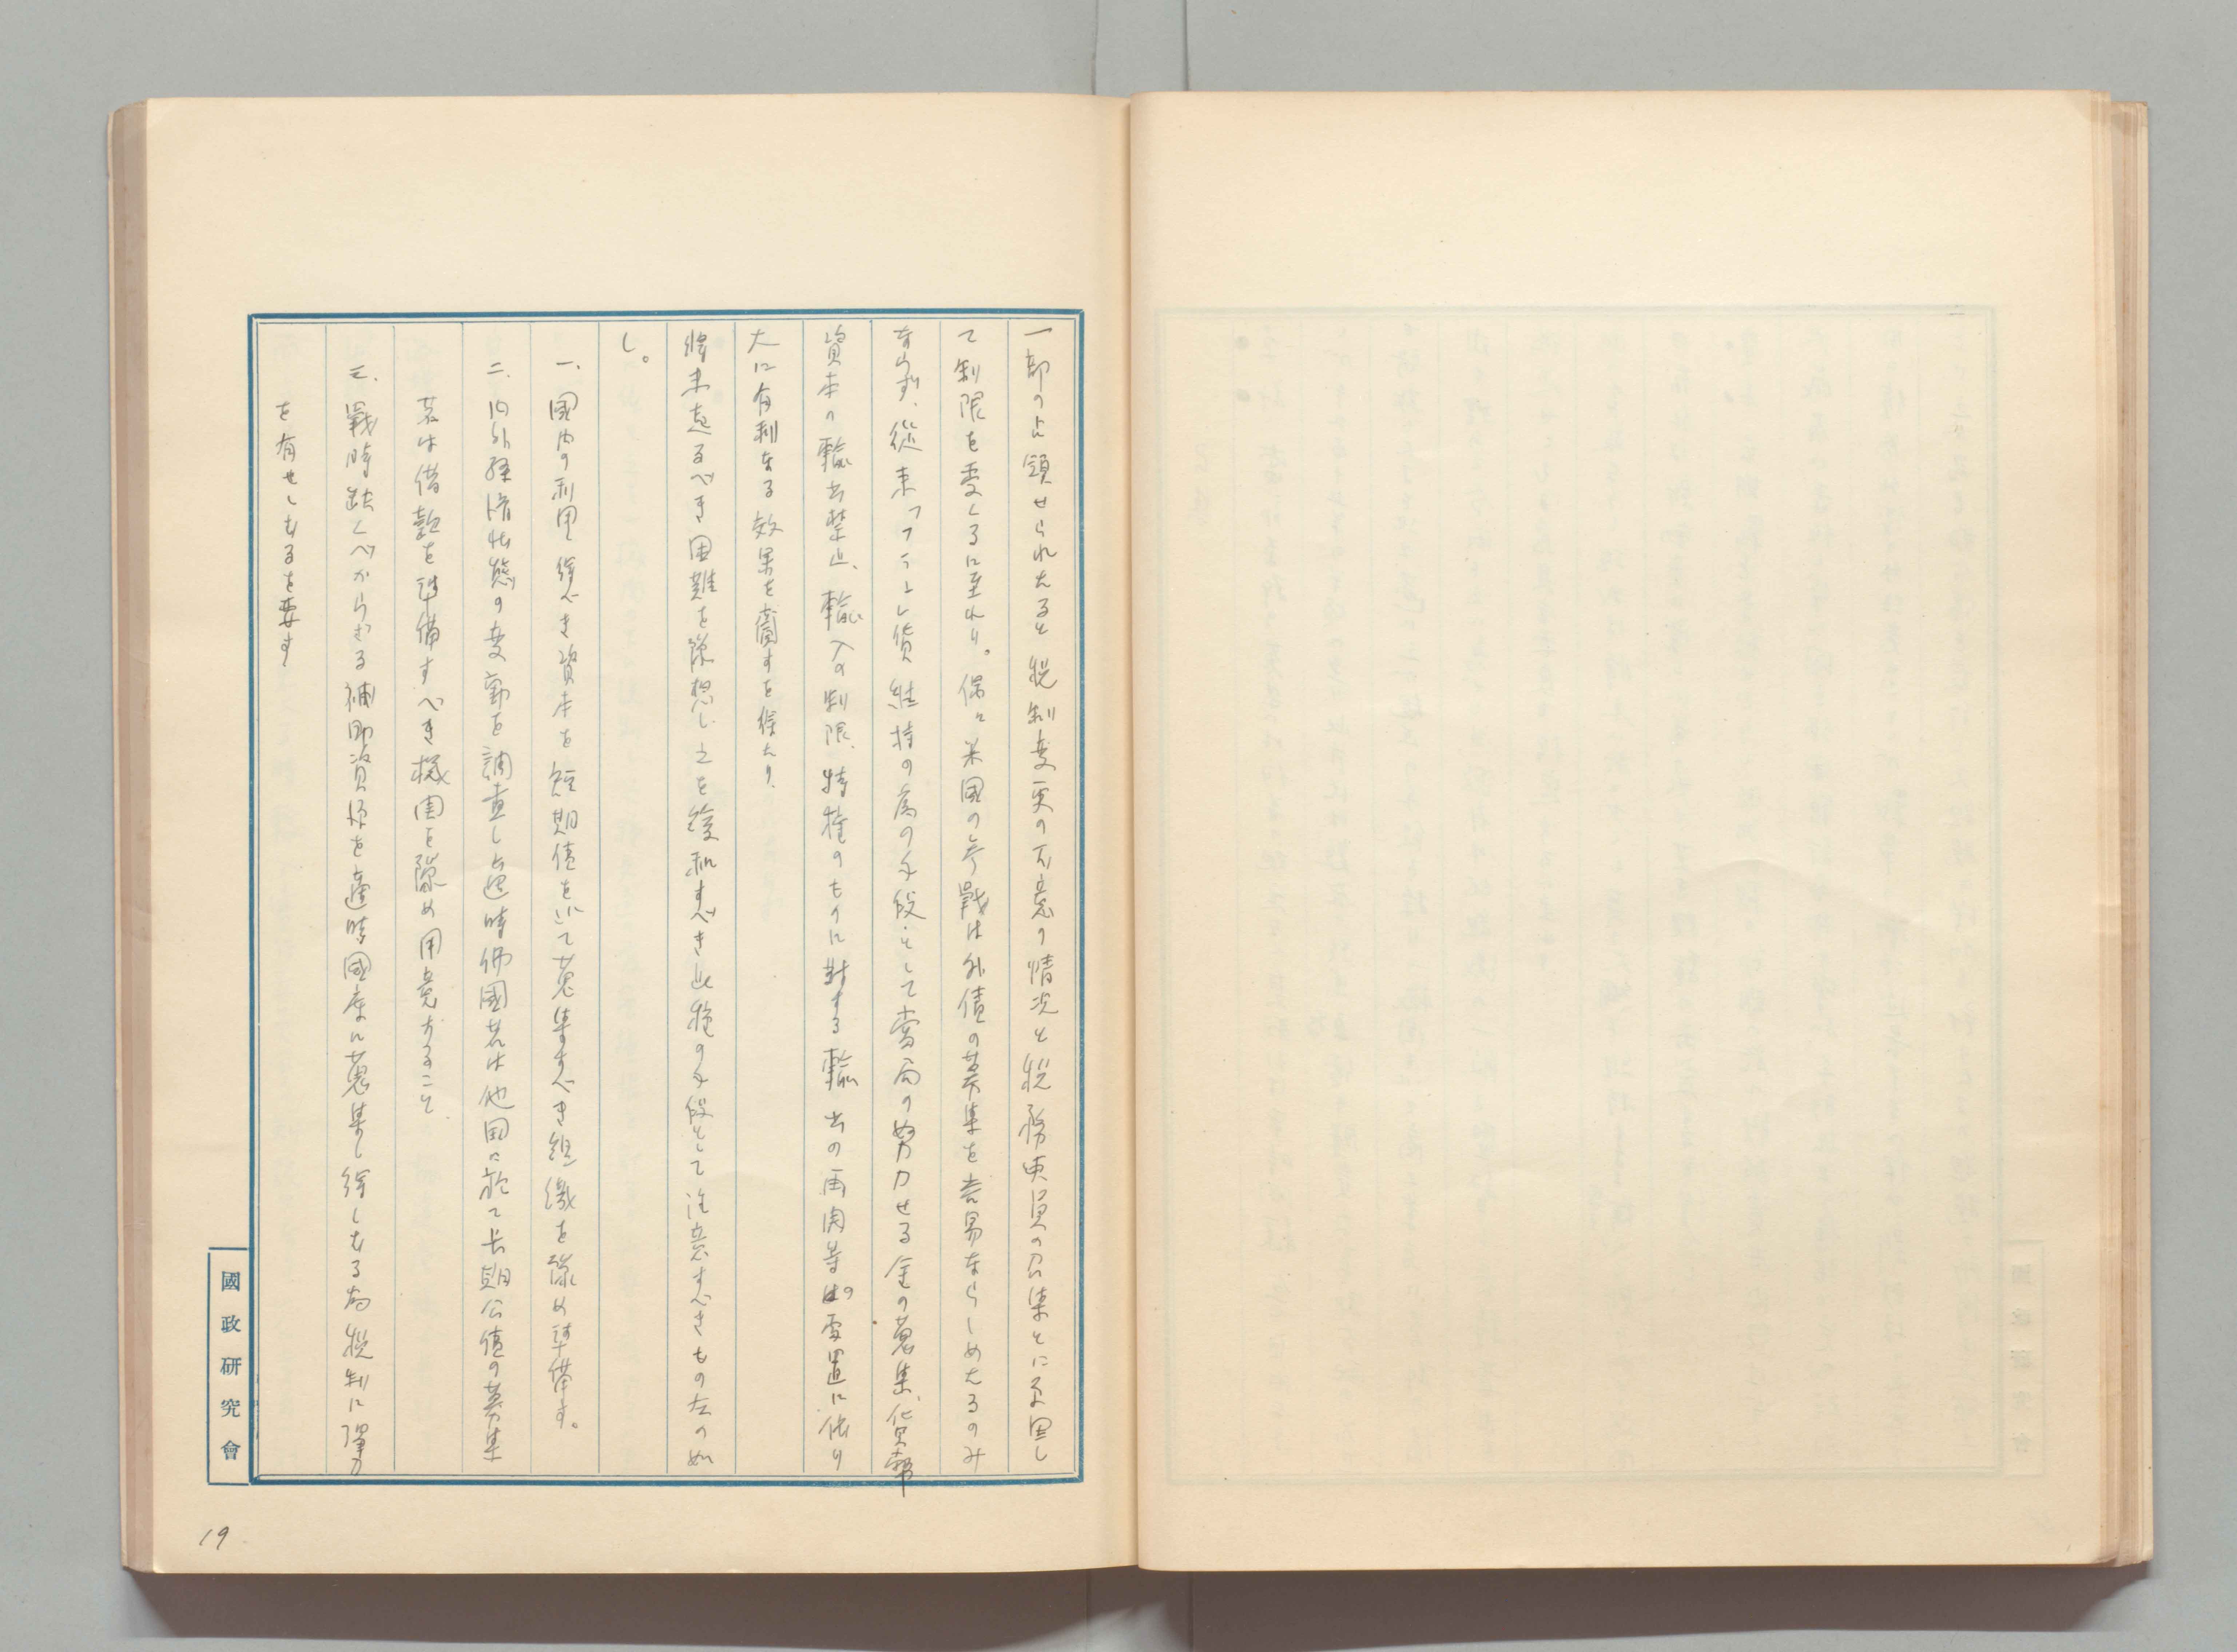 一部の占領せられたると税制変更の不意の情況と税務吏員の召集とに原因し
て制限を受くるに至れり。偶々米国の参戦は外債の募集を容易ならしめたるのみ
ならず、従来フラン貨維持の為の手段として当局の努力せる金の蒐集、貨幣
資本の輸出禁止、輸入の制限、特種のものに対する輸出の再開等の処置に依り
大に有利なる効果を齎すを得たり。
将来起るべき困難を予想し之を緩和すべき此種の手段として注意すべきもの左の如
し。
一、國内の利用得べき資本を短期債を以て蒐集すべき組織を予め準備す。
二、内外経済状態の変動を調査し適時仏國若は他国に於て長期公債の募集
若は借款を準備すべき機関を予め用意すること
三、戦時缺くべからざる補助資源を適時國庫に蒐集し得しむる為税制に弾力
を有せしむるを要す
國政研究會
19